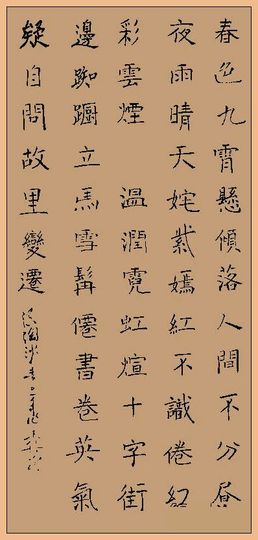 春色九霄懸傾落人間不分昼
夜雨晴天姹紫嫣紅不識倦幻
彩雲煙 温潤霓虹煊十字街
邊踟躕立馬雪髯僊書卷英氣
疑自問故里變遷
浪淘沙